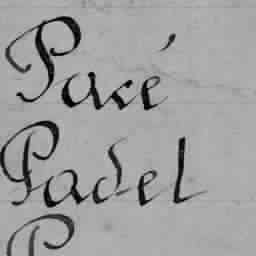 Pacé
Padel
P